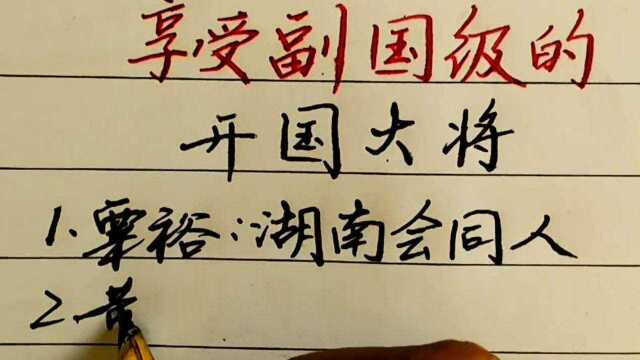 享受副国级的
开国大将
1.粟裕:湖南会同人
2.